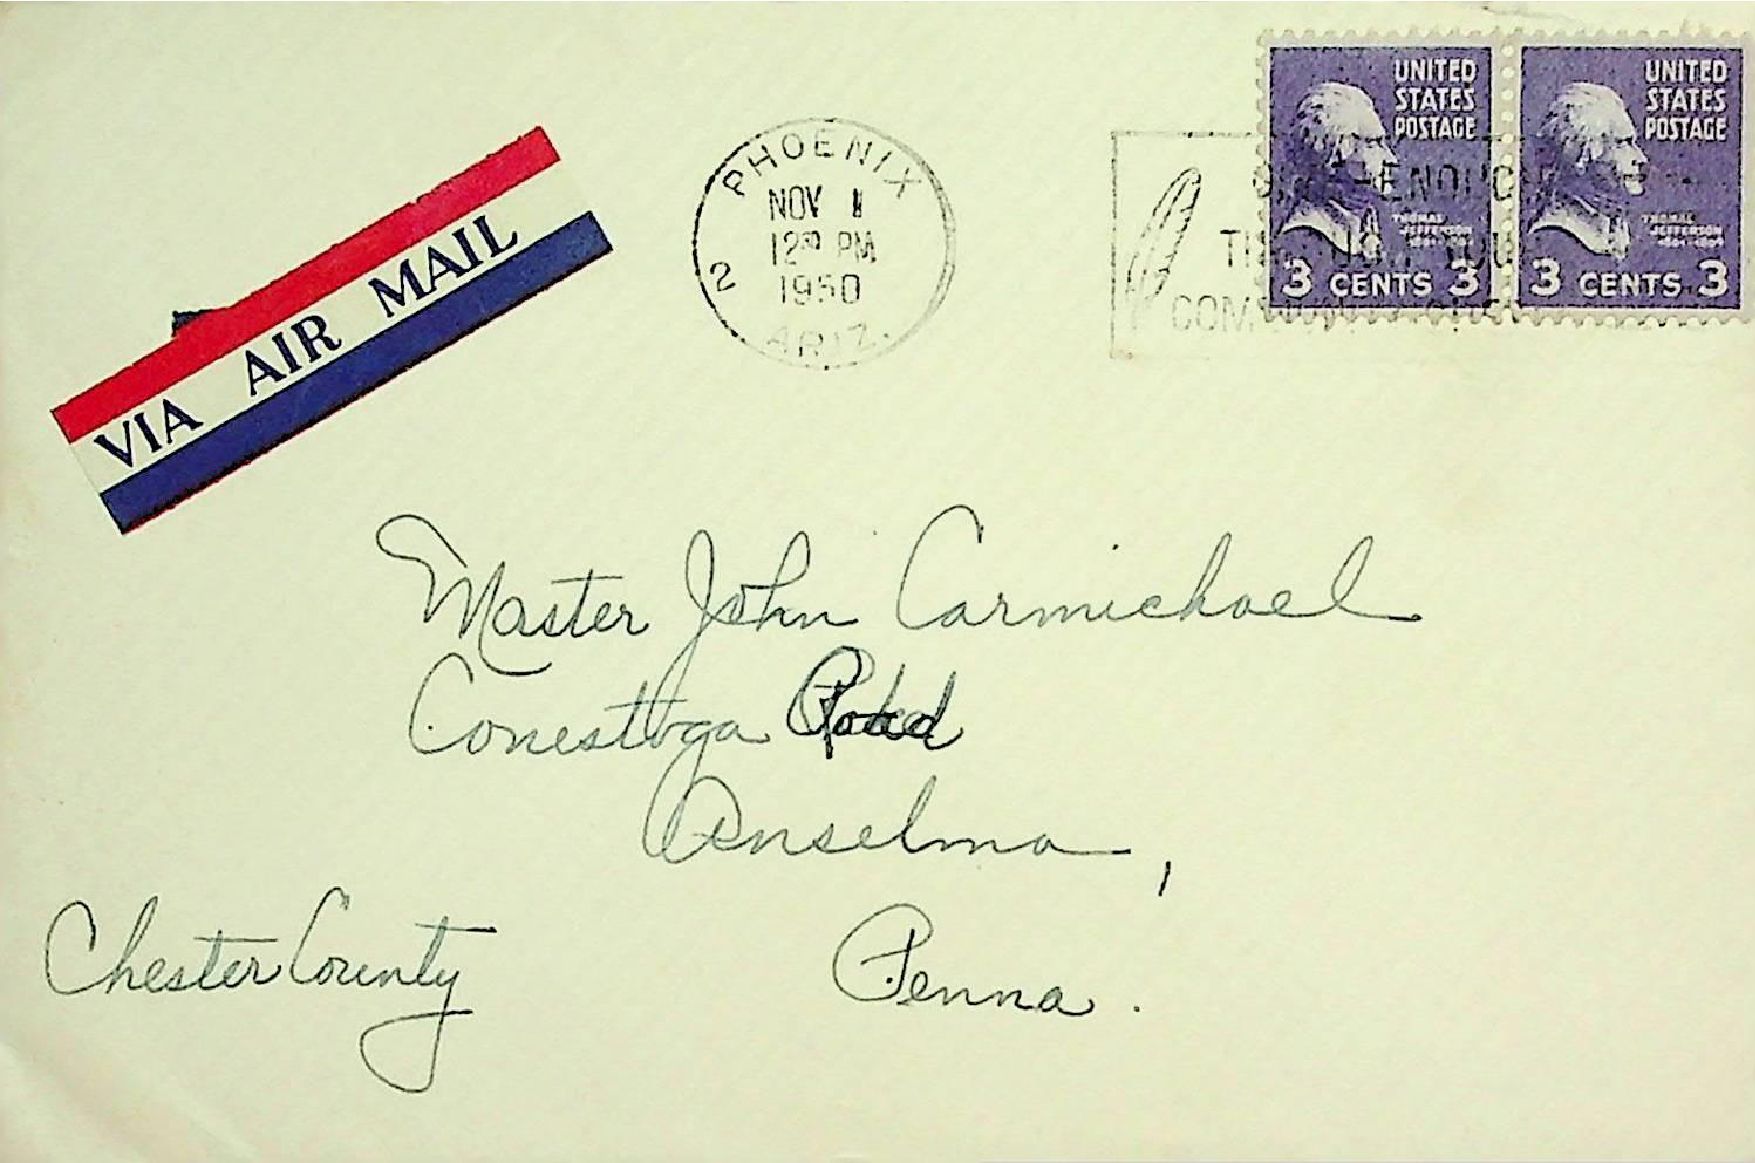 VIA AIR MAIL
PHOENIX
NOV 1
12 PM
1950
2
ARIZ.
UNITED
STATES
POSTAGE
THOMAS
JEFFERSON
3 CENTS 3
UNITED
STATES
POSTAGE
THOMAS
JEFFERSON
3 CENTS 3
Master John Carmichael
Conestoga Road
Anselma,
Chester County
Penna.